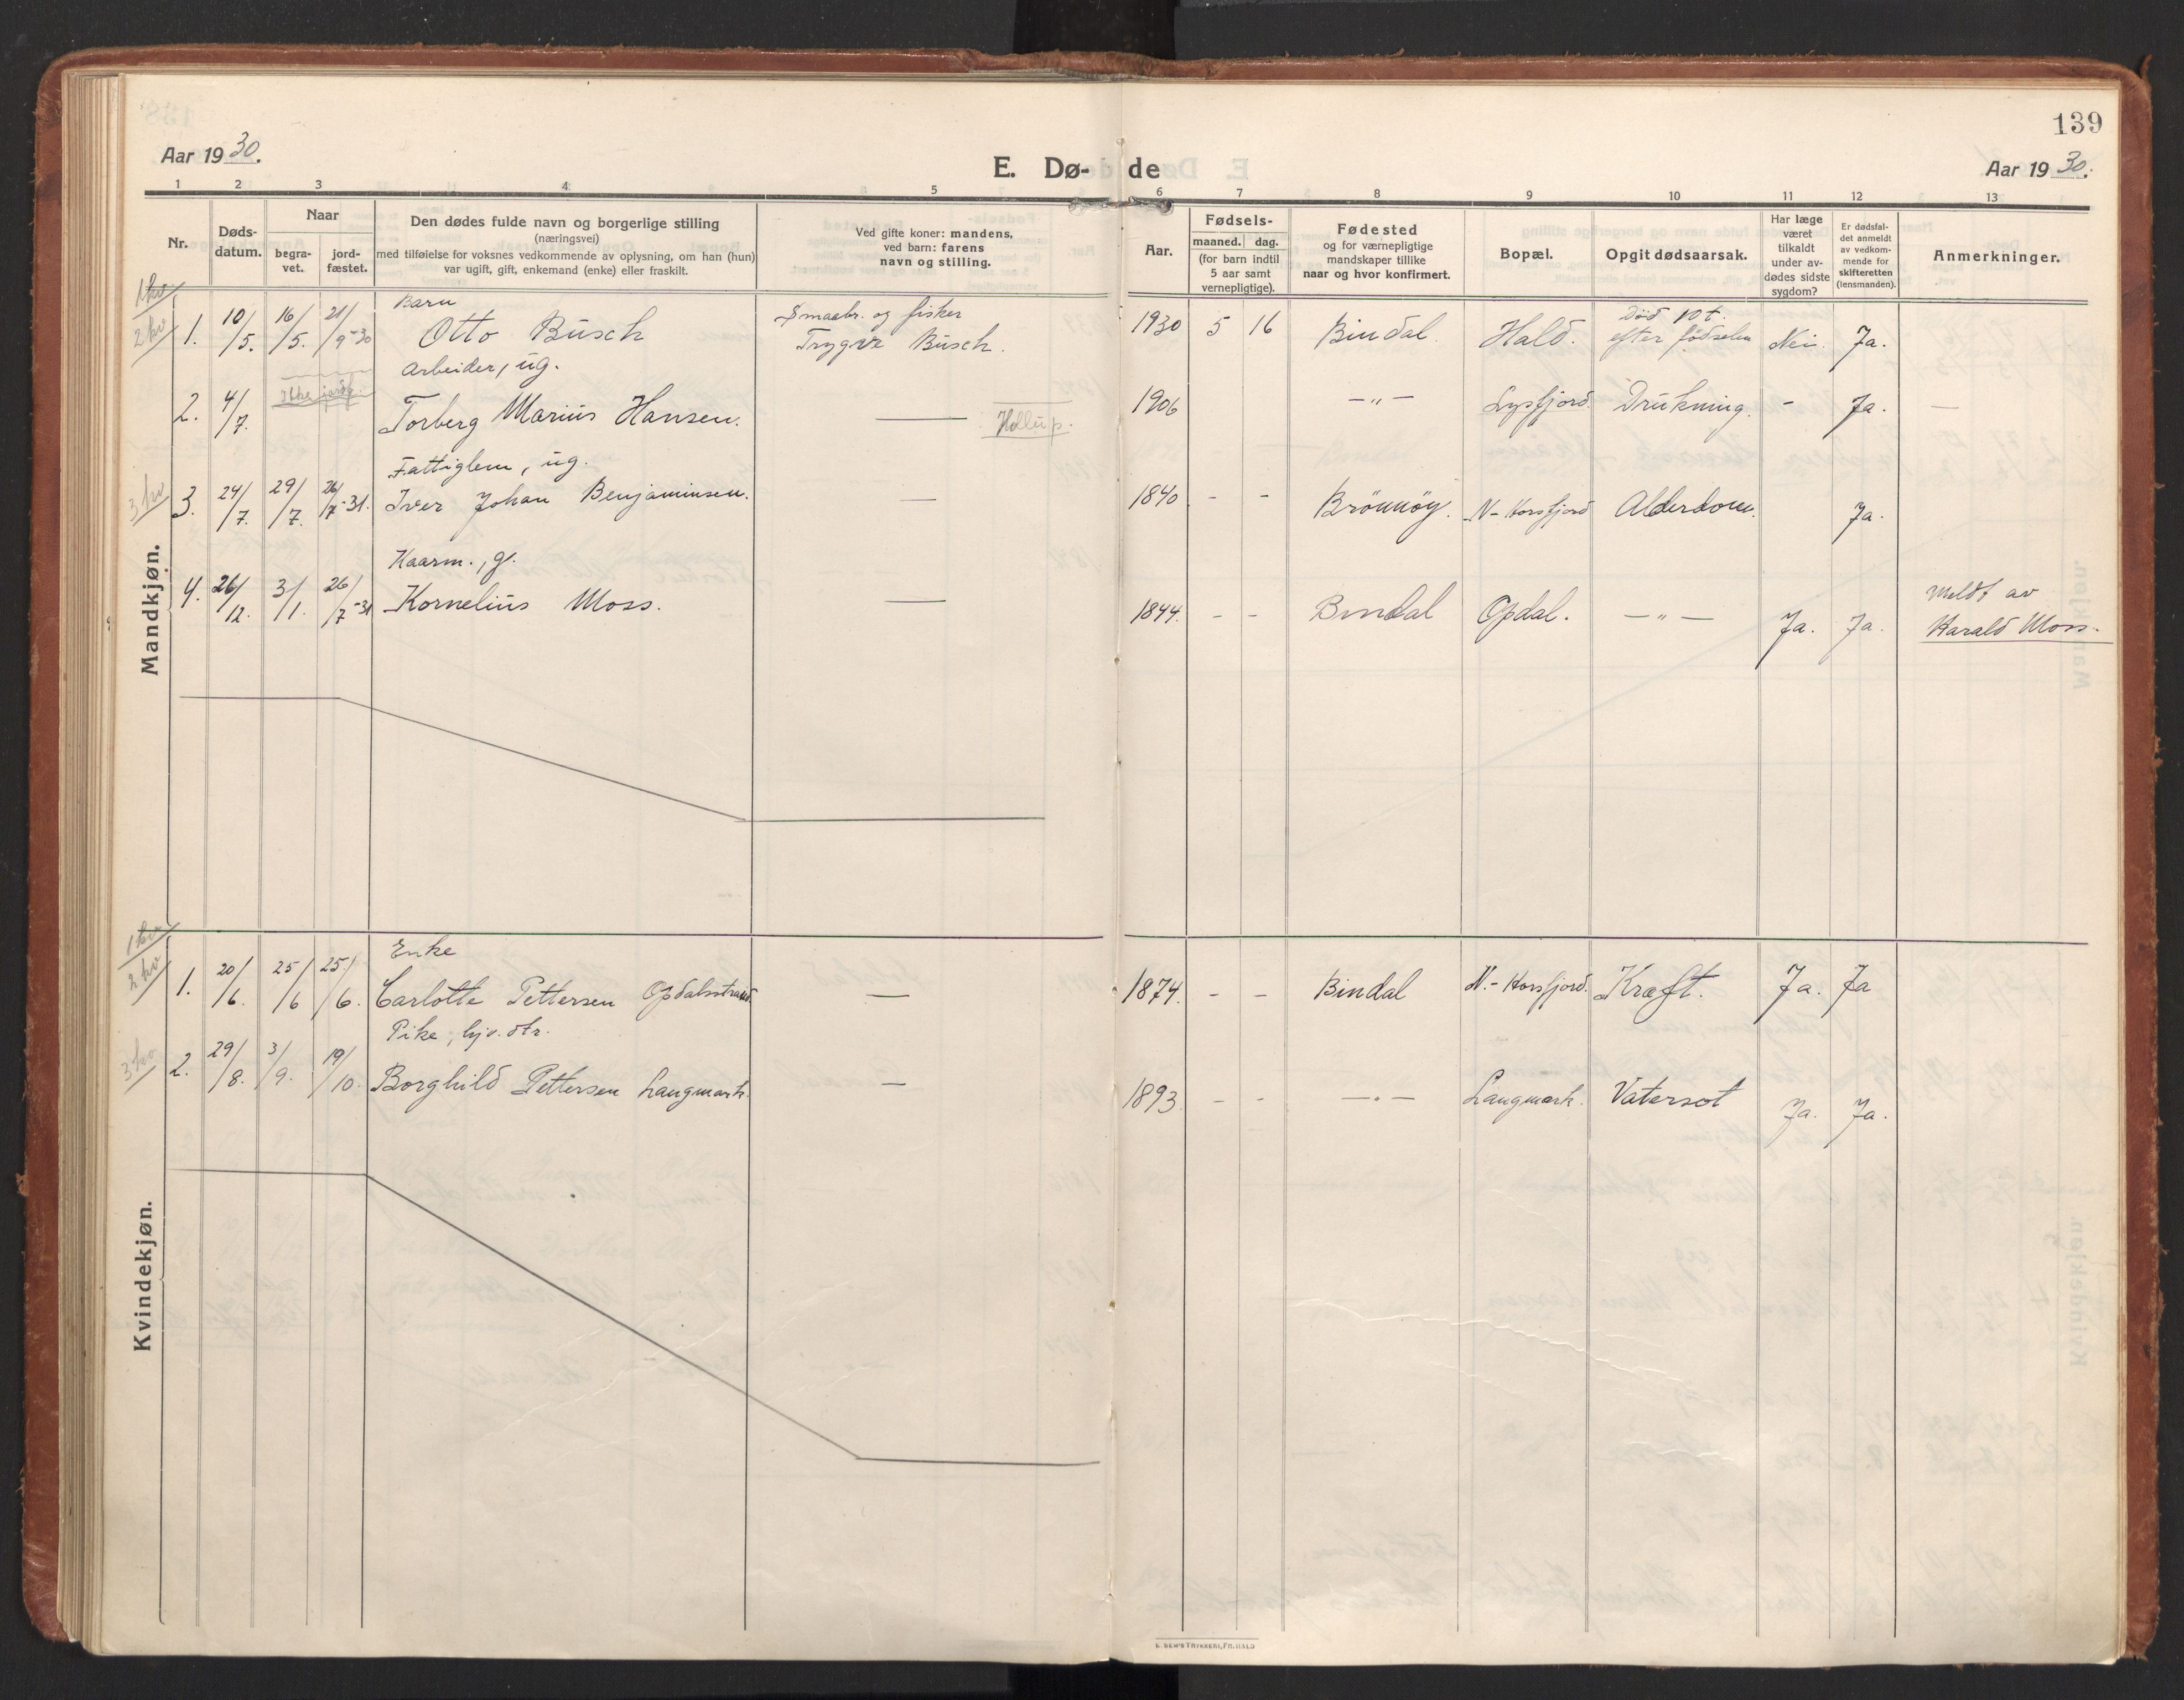 139
Aar 1930.
E. Dø- de
Aar 1930.
1 2 3 4 5 6 7 8 9 10 11 12 13
Nr.
Døds-
datum.
Naar
begra-
vet.
jord-
fæstet.
Den dødes fulde navn og borgerlige stilling
(næringsvei)
med tilføielse for voksnes vedkommende av oplysning, om han (hun)
var ugift, gift, enkemand (enke) eller fraskilt.
Ved gifte koner: mandens,
ved barn: farens
navn og stilling.
Aar.
Fødsels-
maaned. dag.
(for barn indtil
5 aar samt
vernepligtige).
Fødested
og for værnepligtige
mandskaper tillike
naar og hvor konfirmert.
Bopæl.
Opgit dødsaarsak.
Har læge
været
tilkaldt
under av-
dødes sidste
sygdom?
Er dødsfal-
det anmeldt
av vedkom-
mende for
skifteretten
(lensmanden).
Anmerkninger.
Mandkjøn.
1 kv
2 kv
Barn
Smaabr. og fisker
Død 10 t.
1. 10/5. 16/5. 21/9-30 Otto Busch Trygve Busch. 1930 5 16 Bindal. Hald. efter fødselen Nei. Ja.
Arbeider, ug.
Ikke jordf.
2. 4/7. Torberg Marius Hansen. — 1906 —„— Lysfjord. Drukning. - Ja. —
Fattiglem, ug.
3 kv
3. 24/7. 29/7. 26/7-31. Iver Johan Benjaminsen. — 1840 - - Brønnøy. N-Horsfjord Alderdom. Ja.
Kaarm., g.
Meldt av
4. 26/12. 3/1. 26/7-31 Kornelius Moss. — 1844. - - Bindal Opdal. —„— Ja. Ja. Harald Moss.
Kvindekjøn.
1 kv
2 kv
Enke
1. 20/6. 25/6 25/6. Carlotte Pettersen Opdalsstrand — 1874. - - Bindal N.-Horsfjord. Kræft. Ja. Ja
Pike, hjv. dtr.
3 kv
2. 29/8. 3/9. 19/10. Borghild Pettersen Langmark. — 1893. - - —„— Langmark. Vatersot Ja. Ja.